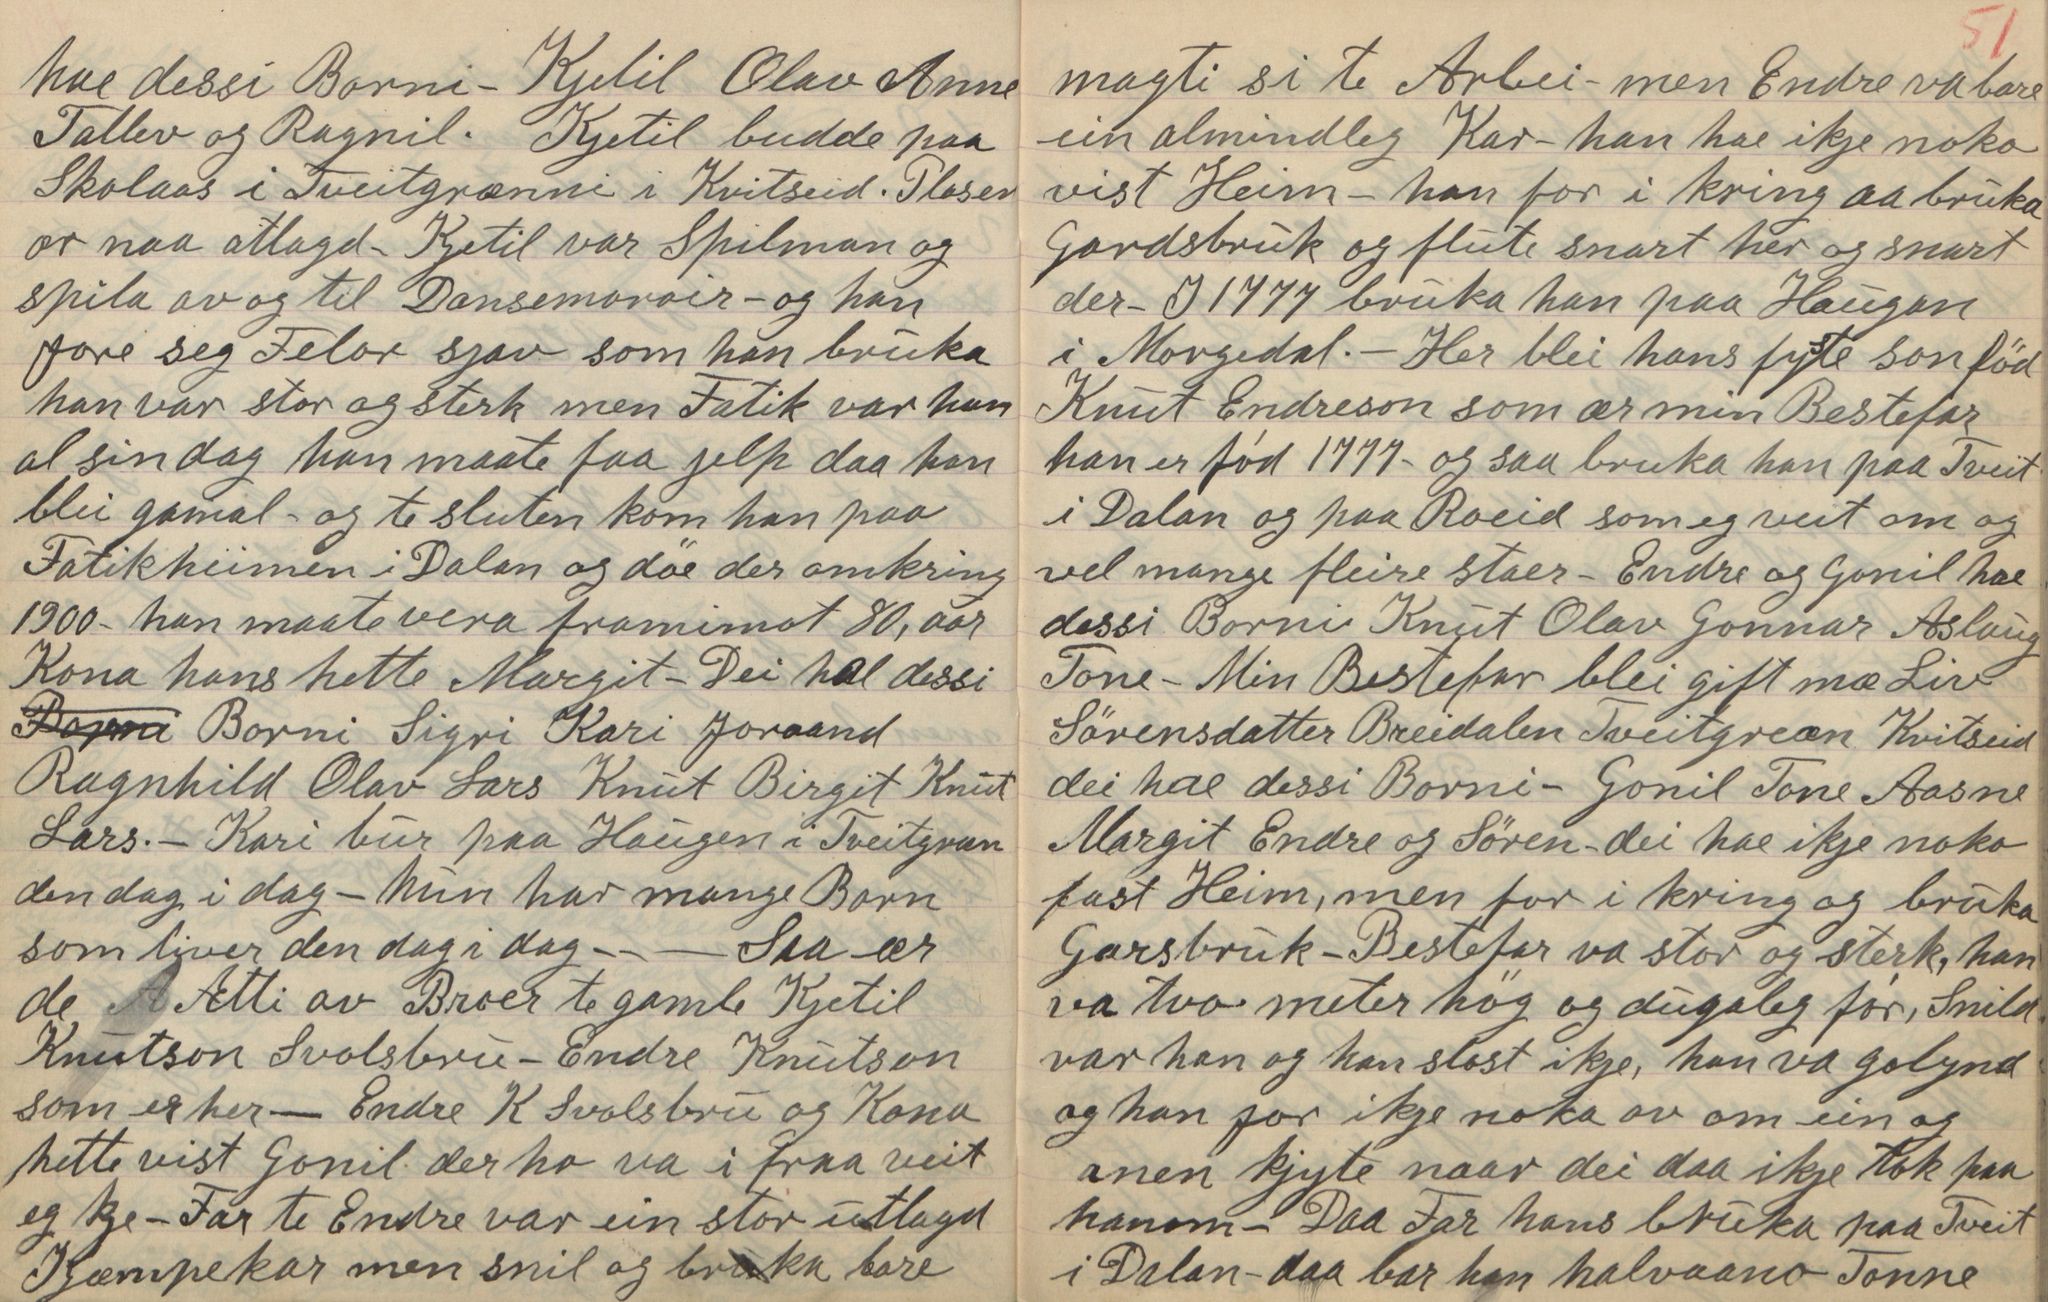 hae dessi Borni - Kjetil Olav Anne
Tallev og Ragnil. Kjetil budde paa
Skolaas i Tveitgrænni i Kvitseid. Plasen
ær naa atlagd - Kjetil var Spilman og
spila av og til Dansemoroir - og han
jore seg Felor sjav som han bruka
han var stor og sterk men Fatik var han
al sin dag han maate faa jelp daa han
blei gamal - og te sluten kom han paa
Fatikheimen i Dalan og döe der omkring
1900 - han maate vera framimot 80, aar
Kona hans hette Margit - Dei hae dessi
Borni Borni Sigri Kari Joraand
Ragnhild Olav Lars Knut Birgit Knut
Lars. - Kari bur paa Haugen i Tveitgræn
den dag i dag - hun har mange Born
som liver den dag i dag - - — Saa ær
de Ætti av Broer te gamle Kjetil
Knutson Svolsbru - Endre Knutson
som er her — Endre K Svolsbru og Kona
hette vist Gonil der ho va i fraa veit
eg kje - Far te Endre var ein stor utlagd
Kjæmpekar men snil og bruka bare
51
magti si te Arbei - men Endre va bare
ein almindleg Kar - han hae ikje noko
vist Heim - han for i kring aa bruka
Gardsbruk og flute snart her og snart
der - I 1777 bruka han paa Haugan
i Morgedal. - Her blei hans fyste son föd
Knut Endreson som ær min Bestefar
han er föd 1777 - og saa bruka han paa Tveit
i Dalan og paa Roeid som eg veit om og
vel mange fleire staer - Endre og Gonil hae
dessi Borni Knut Olav Gonnar Aslaug
Tone - Min Bestefar blei gift mæ Liv
Sörensdatter Breidalen Tveitgreæn Kvitseid
dei hae dessi Borni - Gonil Tone Aasne
Margit Endre og Sören - dei hae ikje noko
fast Heim, men for i kring og bruka
Garsbruk - Bestefar va stor og sterk, han
va tvo meter hög og dugaleg för, Snild
var han og han slost ikje, han va golynd
og han jor ikje noka av om ein og
anen kjyte naar dei daa ikje tok paa
hanom - Daa Far hans bruka paa Tveit
i Dalan - daa bar han halvaano Tonne